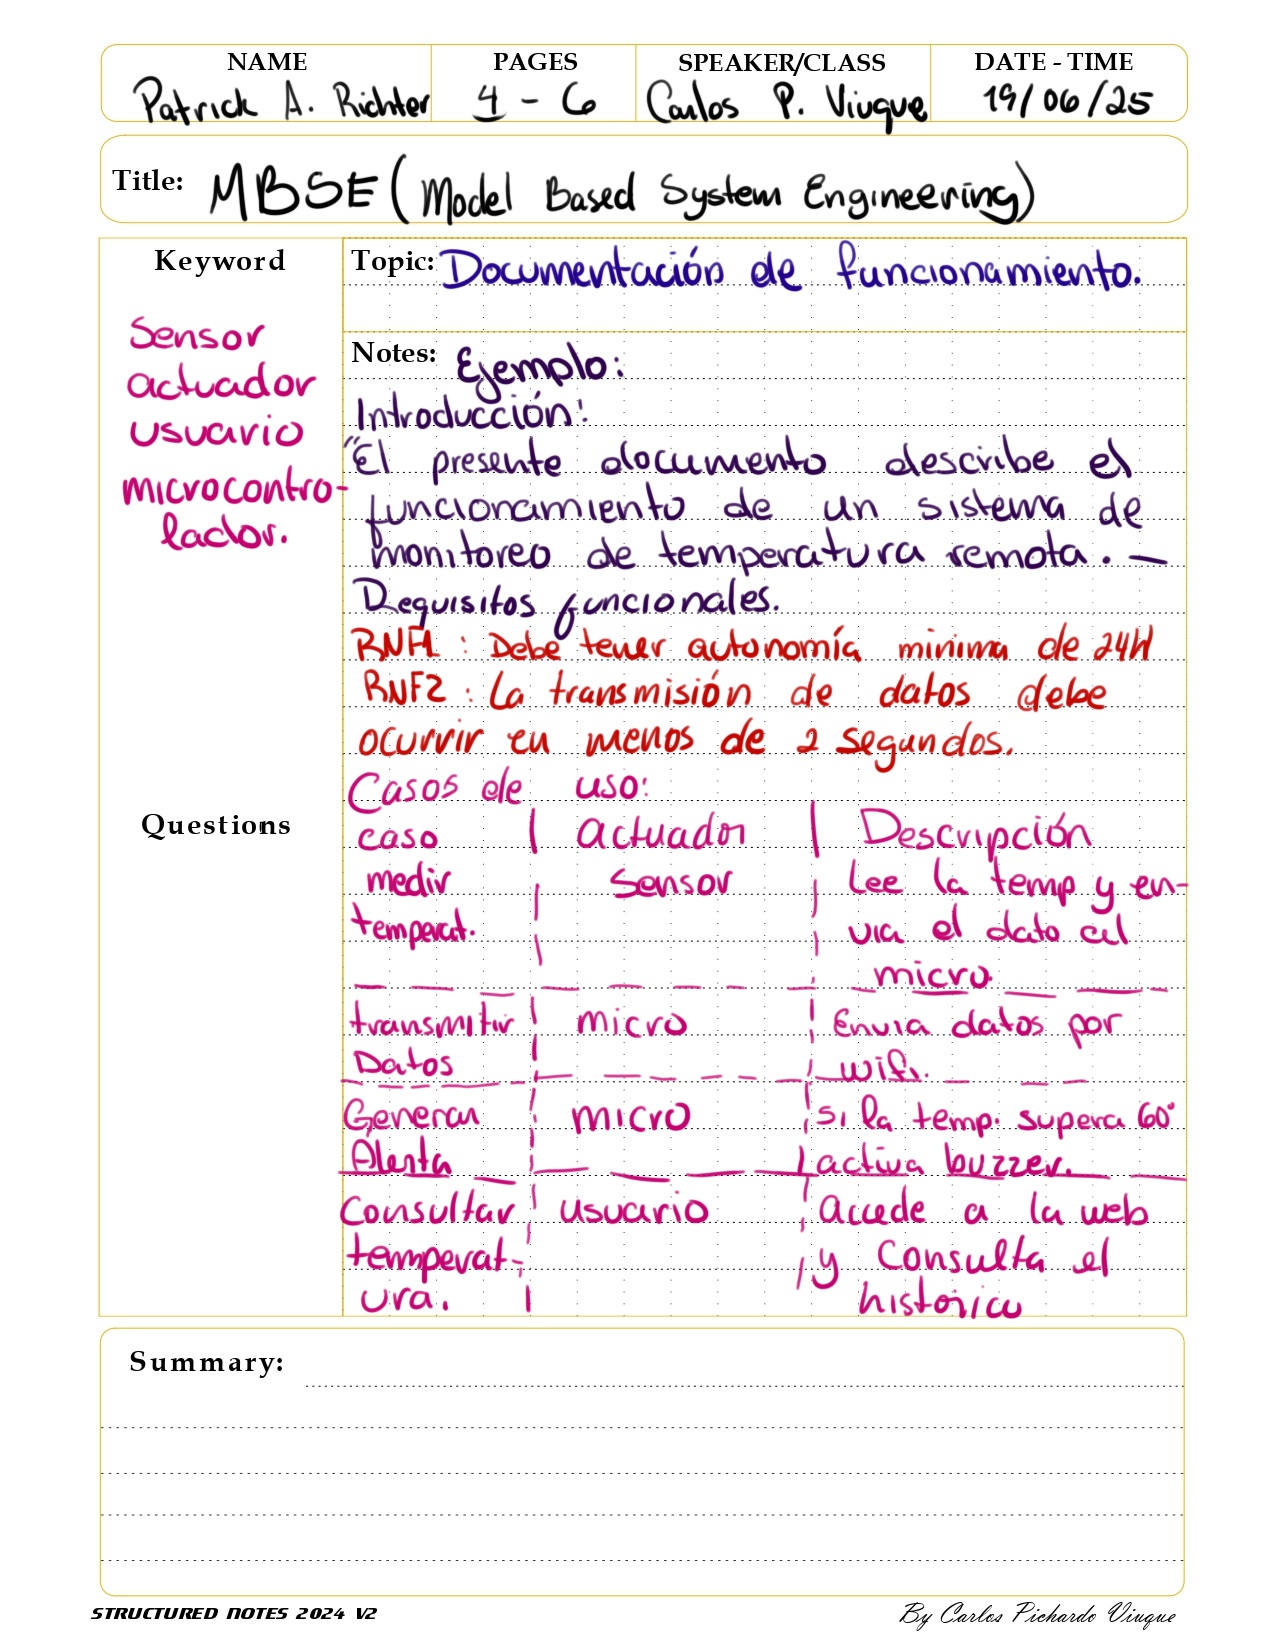 NAME PAGES SPEAKER/CLASS DATE - TIME
Patrick A. Richter 4 - 6 Carlos P. Viuque 19/06/25
Title: MBSE (Model Based System Engineering)
Keyword
Sensor
actuador
usuario
microcontro-
lador.
Questions
Topic: Documentación de funcionamiento.
Notes: Ejemplo:
Introducción:
"El presente documento describe el
funcionamiento de un sistema de
monitoreo de temperatura remota. —
Requisitos funcionales.
RNF1 : Debe tener autonomía minima de 24H
RNF2 : La transmisión de datos debe
ocurrir en menos de 2 segundos.
Casos de uso:
caso | actuador | Descripción
medir | Sensor | Lee la temp y en-
temperat. | | via el dato al
micro.
transmitir | micro | Envia datos por
Datos | | wifi.
Generar | micro | si la temp. supera 60°
Alerta | | activa buzzer.
Consultar | usuario | Accede a la web
temperat- | | y consulta el
ura. | | historico
Summary:
STRUCTURED NOTES 2024 V2
By Carlos Pichardo Viuque